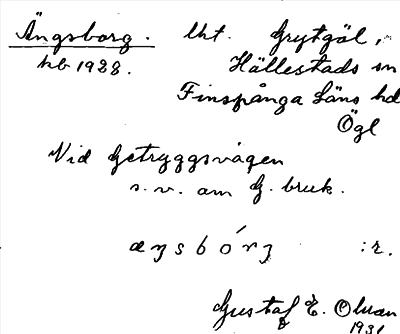 Ängsborg. lht. Grytgöl,
hb 1928. Hällestads sn
Finspånga Läns hd
Ögl
Vid Getryggsvägen
s.v. om G. bruk.
æŋsbórj :r.
Gustaf E. Olsson
1931